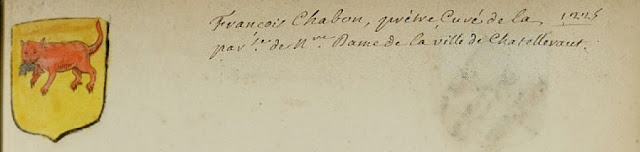 François Chabon, prêtre, Curé de la 1225
par.sse de N.re Dame de la ville de Chatelleraut.